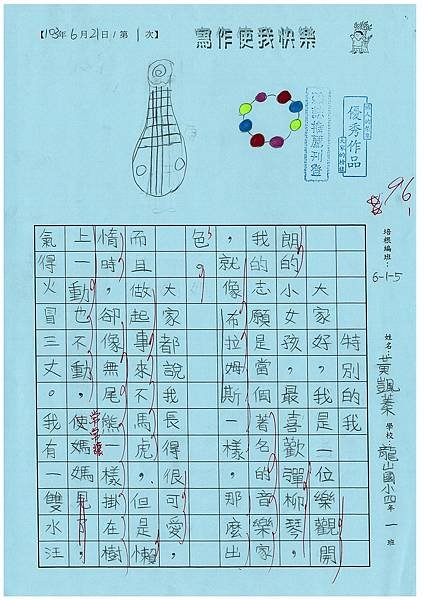 【103年6月2日/第1次】
寫作使我快樂
優秀作品
96
培根編班：6-1-5
姓名：黃凱蓁
學校：龍山國小四年一班
特別的我
大家好，我是一位樂觀開
朗的小女孩，最喜歡彈柳琴，
我的志願是當個著名的音樂家
，就像布拉姆斯一樣，那麼出
色。
大家都說我長得很可愛，
而且做起事來不馬虎，但是懶
惰時，卻像無尾熊一樣，掛在樹
上一動也不動，使媽媽見了
常常讓
氣得火冒三丈。我有一雙水汪